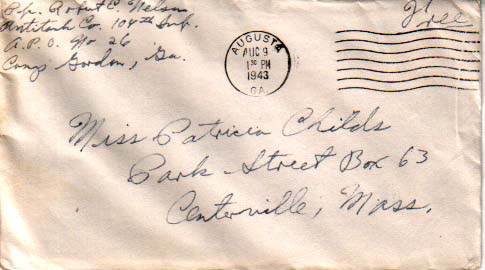 Pfc. Robert C. Nelson
Antitank Co. 104th Inf.
A.P.O. No 26
Camp Gordon, Ga.
Free
AUGUSTA
AUG 9
1 30 PM
1943
GA.
Miss Patricia Childs
Park Street Box 63
Centerville, Mass.